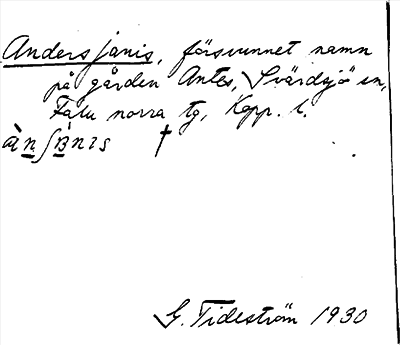 Anders janis, försvunnet namn
på gården Antes, Svärdsjö sn,
Falu norra tg, Kopp. l.
†
G. Tideström 1930